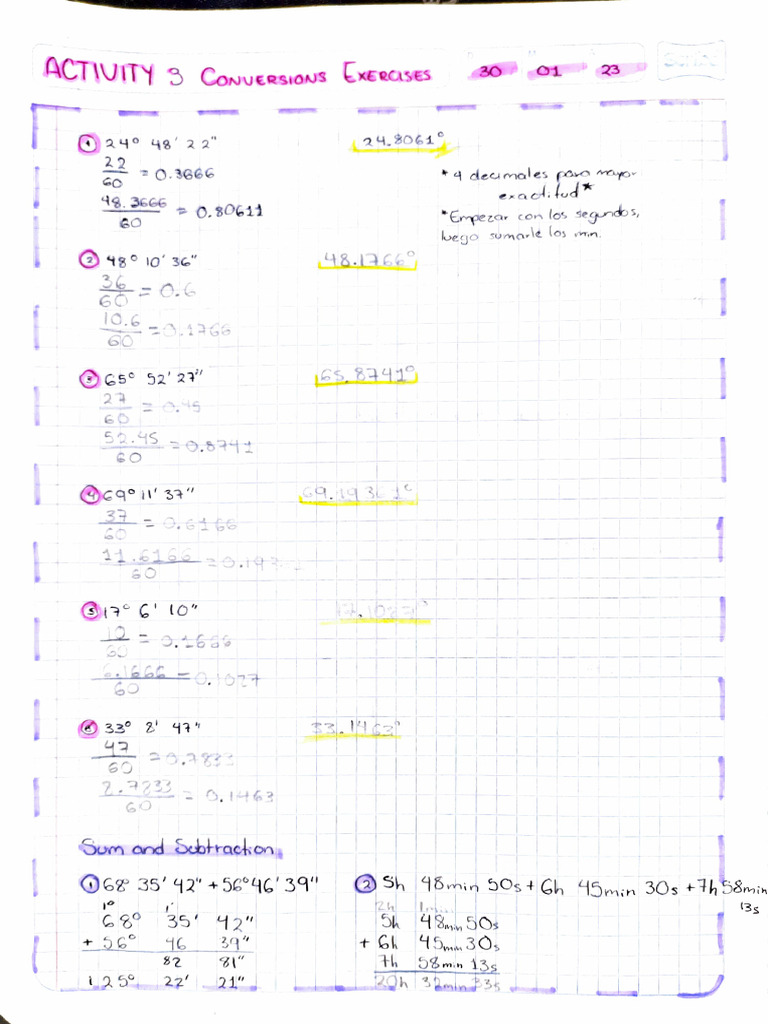 ACTIVITY 3 CONVERSIONS EXERCISES 30 01 23
1 24° 48' 22" 24.8061°
22/60 = 0.3666
48.3666/60 = 0.80611
*4 decimales para mayor
exactitud*
*Empezar con los segundos,
luego sumarle los min.
2 48° 10' 36" 48.1766°
36/60 = 0.6
10.6/60 = 0.1766
3 65° 52' 27" 65.8741°
27/60 = 0.45
52.45/60 = 0.8741
4 69° 11' 37" 69.19361°
37/60 = 0.6166
11.6166/60 = 0.193
5 17° 6' 10" 17.1027°
10/60 = 0.1666
6.1666/60 = 0.1027
6 33° 8' 47" 33.1463°
47/60 = 0.7833
8.7833/60 = 0.1463
Sum and Subtraction
1 68° 35' 42" + 56° 46' 39"
1° 1'
68° 35' 42"
+ 56° 46 39"
82 81"
125° 22' 21"
2 5h 48min 50s + 6h 45min 30s + 7h 58min
13s
2h 1min
5h 48min 50s
+ 6h 45min 30s
7h 58min 13s
20h 32min 33s